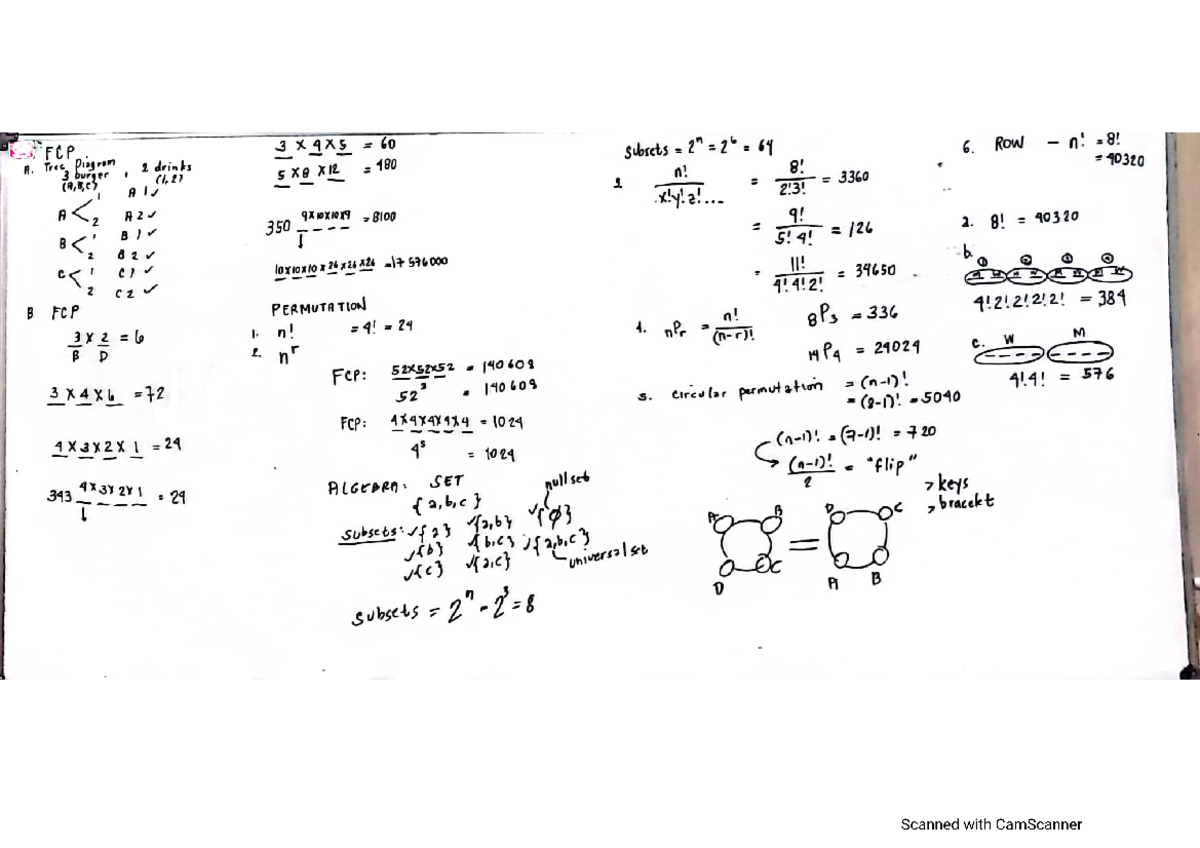 FCP
A. Tree Diagram
3 burger , 2 drinks
(A, B, C) (1, 2)
A 1 A 1 ✓
2 A 2 ✓
B 1 B 1 ✓
2 B 2 ✓
C 1 C 1 ✓
2 C 2 ✓
B FCP
3 x 2 = 6
B D
3 x 4 x 6 = 72
4 x 3 x 2 x 1 = 24
343 4 x 3 x 2 x 1 = 24
3 x 4 x 5 = 60
5 x 8 x 12 = 480
350 9 x 10 x 10 x 9 = 8100
10 x 10 x 10 x 26 x 26 x 26 = 17 576 000
PERMUTATION
1. n! = 4! = 24
2. n^r
FCP: 52 x 52 x 52 = 140 608
52^3 = 140 608
FCP: 4 x 4 x 4 x 4 x 4 = 1024
4^5 = 1024
ALGEBRA: SET
{ a, b, c } null set
Subsets: ✓{ a } ✓{a, b} ✓{ ∅ }
✓{b} ✓{b, c} ✓{a, b, c}
✓{c} ✓{a, c} universal set
subsets = 2^n - 2^3 = 8
subsets = 2^n = 2^6 = 64
n! / x! y! z! ... = 8! / 2! 3! = 3360
= 9! / 5! 4! = 126
= 11! / 4! 4! 2! = 34650
4. nPr = n! / (n-r)! 8P3 = 336
14P4 = 24024
5. circular permutation = (n-1)!
= (8-1)! = 5040
(n-1)! = (7-1)! = 720
(n-1)! / 2 = "flip"
> keys
> bracekt
A B = D C
D C A B
6. ROW - n! = 8!
= 40320
a. 8! = 40320
b. ① ② ③ ④
4! 2! 2! 2! 2! = 384
c. W M
4! 4! = 576
Scanned with CamScanner